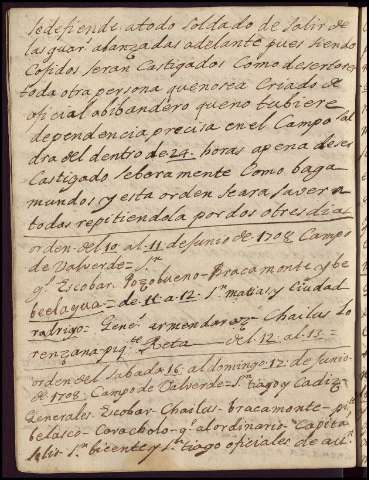 se defiende atodo soldado de salir de
las guar abanzadas adelante pues siendo
Cojidos seran Castigados Como desertores
toda otra persona quenosea Criado de
oficial obibandero queno tubiere
dependencia precisa en el Campo sal
dra del dentro de 24. horas apena deser
Castigado seberamente Como baga
mundos y esta orden seara saver a
todas repitiendola por dos otres dias
orden del 10 al 11 de Junio de 1708 Campo
de Valverde= Sn
gl Escobar Pozobueno- Bracamonte y be
beelagua= de 11 a 12. Sn matias y Ciudad
rodrigo= Genes armendariz Chaslus Lo
renzana- piqte Reta del 12. al. 13=
orden del sabado 16. al domingo 17 de Junio
de 1708 Campo de Valverde= Sn tiago y Cadiz=
Generales- Escobar- Chaslus- bracamonte- pite
belasco- Caracholo- gl al ordinario- Capitan
Sn bicente y Sn tiago oficiales de